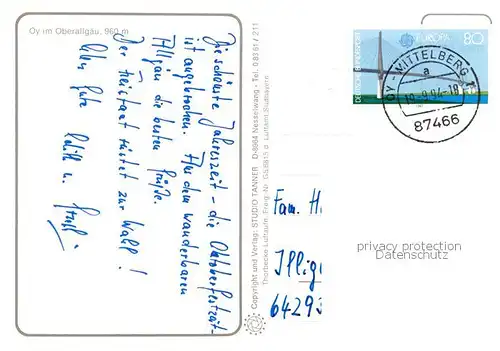 Oy im Oberallgäu, 960 m
Die schönste Jahreszeit - die Oktoberfestzeit -
ist angebrochen. Aus dem wunderbaren
Allgäu die besten Grüße.
Der Freistaat rüstet zur Wahl!
Alles Gute
Copyright und Verlag: STUDIO TANNER D-8964 Nesselwang - Tel. 08361 / 211
DEUTSCHE BUNDESPOST
EUROPA
80
OY-MITTELBERG 1
a
-9.94-18
87466
Fam. H
Illig
6429
privacy protection
Datenschutz